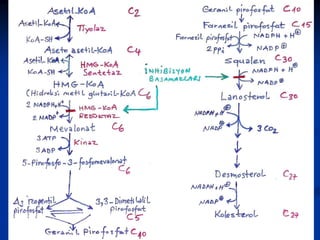 Asetil-KoA C2
Asetil-KoA
KoA-SH
Tiyolaz
Aseto asetil-KoA C4
Asetil-KoA
KoA-SH
HMG-KoA
Sentetaz
HMG-KoA
(Hidroksi metil glutaril-KoA) C6
2 NADPH+H⊕
2 NADP⊕
HMG-KoA
REDÜKTAZ
Mevalonat C6
3ATP
3ADP
Kinaz
5-Pirofosfo-3-fosfomevalonat
C6
Δ3 İzopentil
pirofosfat
3,3-Dimetilallil
Pirofosfat
C5
Geranil Pirofosfat C10
İNHİBİSYON
BASAMAKLARI
Geranil pirofosfat C10
Farnesil pirofosfat C15
Farnesil pirofosfat
2PPi
NADPH+H⊕
NADP⊕
Squalen C30
NADPH+H⊕
NADP⊕
Lanosterol C30
NADPH+H⊕
NADP⊕
3CO2
Desmosterol C27
NADPH+H⊕
NADP⊕
Kolesterol C27